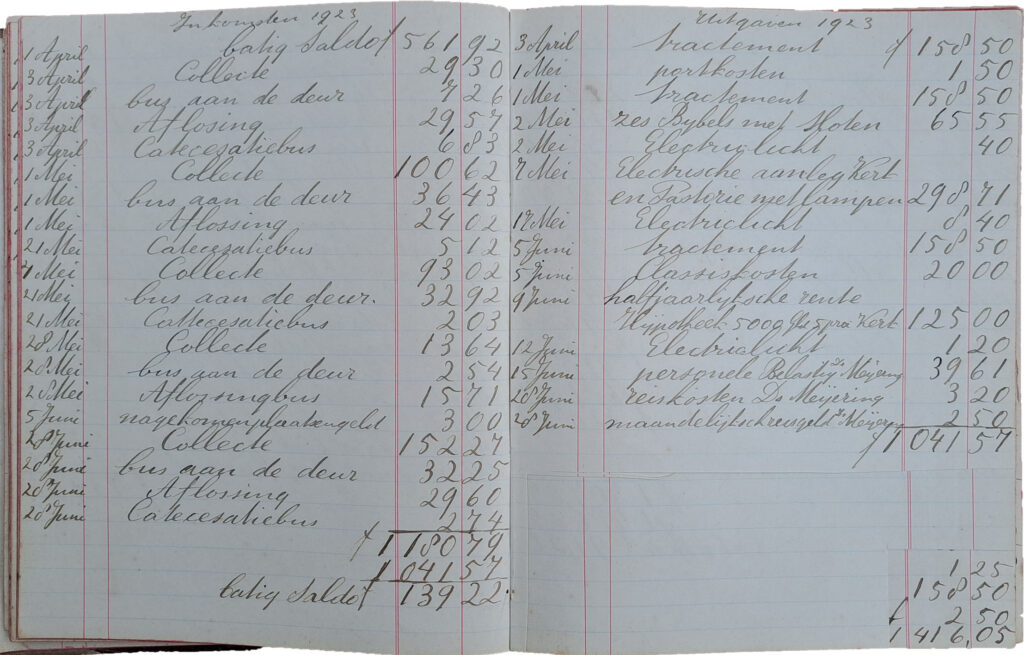 Inkomsten 1923
1 April batig Saldo f 561 92
3 April Collecte 29 30
3 April bus aan de deur 7 26
3 April Aflosing 29 57
3 April Catecesatiebus 6 83
1 Mei Collecte 100 62
1 Mei bus aan de deur 36 43
1 Mei Aflossing 24 02
21 Mei Catecezatiebus 5 12
Mei Collecte 93 02
21 Mei bus aan de deur. 32 92
21 Mei Cattecesatiebus 2 03
28 Mei Collecte 13 64
28 Mei bus aan de deur 2 54
28 Mei Aflozsingbus 15 71
5 Juni nagekomen plaatsengeld 3 00
28 Juni Collecte 152 27
28 Juni bus aan de deur 32 25
28 Juni Aflossing 29 60
28 Juni Catecesatiebus 2 74
f 1180 79
1041 57
batig Saldo f 139 22.
Uitgaven 1923
3 April tractement f 158 50
1 Mei portkosten 1 50
1 Mei tractement 158 50
2 Mei zes Bybels met Noten 65 55
2 Mei Electriclicht 40
7 Mei Electrische aanleg Kerk
en Pastorie met lampen 298 71
17 Mei Electriclicht 8 40
5 Juni tractement 158 50
5 Juni Classiskosten 20 00
9 Juni halfjaarlijksche rente
Hijpotheek 5000 Gls 5 pro Kerk 125 00
12 Juni Electriclicht 1 20
15 Juni personele Belasting Ds Meijering 39 61
28 Juni reiskosten Ds Meijering 3 20
28 Juni maandelijksch reisgeld Ds Meijering 2 50
f 1041 57
1 25
158 50
2 50
f 1 416,05